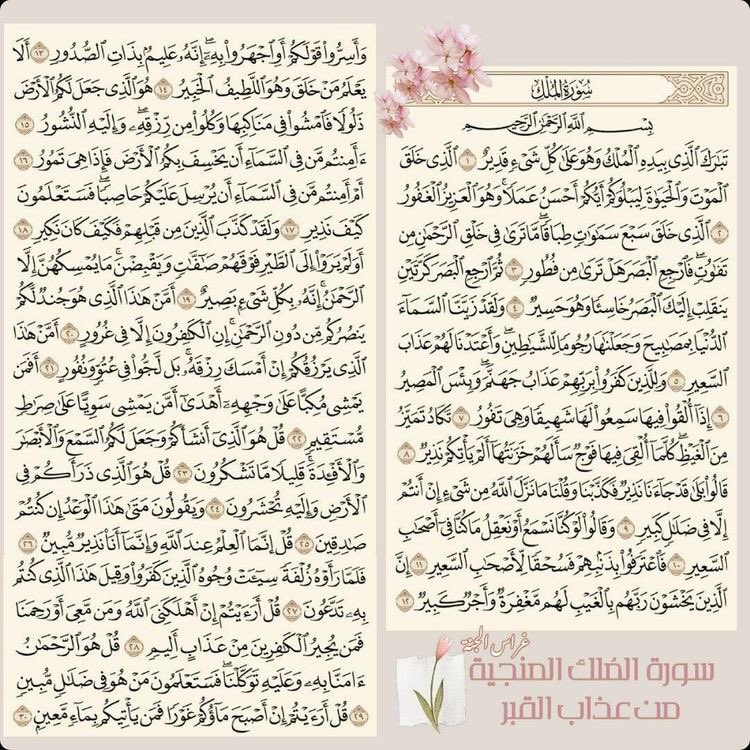 سُورَةُ المُلْكِ
بِسْمِ اللَّهِ الرَّحْمَٰنِ الرَّحِيمِ
تَبَٰرَكَ ٱلَّذِى بِيَدِهِ ٱلْمُلْكُ وَهُوَ عَلَىٰ كُلِّ شَىْءٍ قَدِيرٌ ١ ٱلَّذِى خَلَقَ
ٱلْمَوْتَ وَٱلْحَيَوٰةَ لِيَبْلُوَكُمْ أَيُّكُمْ أَحْسَنُ عَمَلًا ۚ وَهُوَ ٱلْعَزِيزُ ٱلْغَفُورُ
٢ ٱلَّذِى خَلَقَ سَبْعَ سَمَٰوَٰتٍ طِبَاقًا ۖ مَّا تَرَىٰ فِى خَلْقِ ٱلرَّحْمَٰنِ مِن
تَفَٰوُتٍ ۖ فَٱرْجِعِ ٱلْبَصَرَ هَلْ تَرَىٰ مِن فُطُورٍ ٣ ثُمَّ ٱرْجِعِ ٱلْبَصَرَ كَرَّتَيْنِ
يَنقَلِبْ إِلَيْكَ ٱلْبَصَرُ خَاسِئًا وَهُوَ حَسِيرٌ ٤ وَلَقَدْ زَيَّنَّا ٱلسَّمَآءَ
ٱلدُّنْيَا بِمَصَٰبِيحَ وَجَعَلْنَٰهَا رُجُومًا لِّلشَّيَٰطِينِ ۖ وَأَعْتَدْنَا لَهُمْ عَذَابَ
ٱلسَّعِيرِ ٥ وَلِلَّذِينَ كَفَرُوا۟ بِرَبِّهِمْ عَذَابُ جَهَنَّمَ ۖ وَبِئْسَ ٱلْمَصِيرُ
٦ إِذَآ أُلْقُوا۟ فِيهَا سَمِعُوا۟ لَهَا شَهِيقًا وَهِىَ تَفُورُ ٧ تَكَادُ تَمَيَّزُ
مِنَ ٱلْغَيْظِ ۖ كُلَّمَآ أُلْقِىَ فِيهَا فَوْجٌ سَأَلَهُمْ خَزَنَتُهَآ أَلَمْ يَأْتِكُمْ نَذِيرٌ ٨
قَالُوا۟ بَلَىٰ قَدْ جَآءَنَا نَذِيرٌ فَكَذَّبْنَا وَقُلْنَا مَا نَزَّلَ ٱللَّهُ مِن شَىْءٍ إِنْ أَنتُمْ
إِلَّا فِى ضَلَٰلٍ كَبِيرٍ ٩ وَقَالُوا۟ لَوْ كُنَّا نَسْمَعُ أَوْ نَعْقِلُ مَا كُنَّا فِىٓ أَصْحَٰبِ
ٱلسَّعِيرِ ١٠ فَٱعْتَرَفُوا۟ بِذَنۢبِهِمْ فَسُحْقًا لِّأَصْحَٰبِ ٱلسَّعِيرِ ١١ إِنَّ
ٱلَّذِينَ يَخْشَوْنَ رَبَّهُم بِٱلْغَيْبِ لَهُم مَّغْفِرَةٌ وَأَجْرٌ كَبِيرٌ ١٢
غراس الجنة
سورة المُلك المنجية
من عذاب القبر
وَأَسِرُّوا۟ قَوْلَكُمْ أَوِ ٱجْهَرُوا۟ بِهِۦٓ ۖ إِنَّهُۥ عَلِيمٌۢ بِذَاتِ ٱلصُّدُورِ ١٣ أَلَا
يَعْلَمُ مَنْ خَلَقَ وَهُوَ ٱللَّطِيفُ ٱلْخَبِيرُ ١٤ هُوَ ٱلَّذِى جَعَلَ لَكُمُ ٱلْأَرْضَ
ذَلُولًا فَٱمْشُوا۟ فِى مَنَاكِبِهَا وَكُلُوا۟ مِن رِّزْقِهِۦ ۖ وَإِلَيْهِ ٱلنُّشُورُ ١٥
ءَأَمِنتُم مَّن فِى ٱلسَّمَآءِ أَن يَخْسِفَ بِكُمُ ٱلْأَرْضَ فَإِذَا هِىَ تَمُورُ ١٦
أَمْ أَمِنتُم مَّن فِى ٱلسَّمَآءِ أَن يُرْسِلَ عَلَيْكُمْ حَاصِبًا ۖ فَسَتَعْلَمُونَ
كَيْفَ نَذِيرِ ١٧ وَلَقَدْ كَذَّبَ ٱلَّذِينَ مِن قَبْلِهِمْ فَكَيْفَ كَانَ نَكِيرِ ١٨
أَوَلَمْ يَرَوْا۟ إِلَى ٱلطَّيْرِ فَوْقَهُمْ صَٰٓفَّٰتٍ وَيَقْبِضْنَ ۚ مَا يُمْسِكُهُنَّ إِلَّا
ٱلرَّحْمَٰنُ ۚ إِنَّهُۥ بِكُلِّ شَىْءٍۭ بَصِيرٌ ١٩ أَمَّنْ هَٰذَا ٱلَّذِى هُوَ جُندٌ لَّكُمْ
يَنصُرُكُم مِّن دُونِ ٱلرَّحْمَٰنِ ۚ إِنِ ٱلْكَٰفِرُونَ إِلَّا فِى غُرُورٍ ٢٠ أَمَّنْ هَٰذَا
ٱلَّذِى يَرْزُقُكُمْ إِنْ أَمْسَكَ رِزْقَهُۥ ۚ بَل لَّجُّوا۟ فِى عُتُوٍّ وَنُفُورٍ ٢١ أَفَمَن
يَمْشِى مُكِبًّا عَلَىٰ وَجْهِهِۦٓ أَهْدَىٰٓ أَمَّن يَمْشِى سَوِيًّا عَلَىٰ صِرَٰطٍ
مُّسْتَقِيمٍ ٢٢ قُلْ هُوَ ٱلَّذِىٓ أَنشَأَكُمْ وَجَعَلَ لَكُمُ ٱلسَّمْعَ وَٱلْأَبْصَٰرَ
وَٱلْأَفْـِٔدَةَ ۖ قَلِيلًا مَّا تَشْكُرُونَ ٢٣ قُلْ هُوَ ٱلَّذِى ذَرَأَكُمْ فِى
ٱلْأَرْضِ وَإِلَيْهِ تُحْشَرُونَ ٢٤ وَيَقُولُونَ مَتَىٰ هَٰذَا ٱلْوَعْدُ إِن كُنتُمْ
صَٰدِقِينَ ٢٥ قُلْ إِنَّمَا ٱلْعِلْمُ عِندَ ٱللَّهِ وَإِنَّمَآ أَنَا۠ نَذِيرٌ مُّبِينٌ ٢٦
فَلَمَّا رَأَوْهُ زُلْفَةً سِيٓـَٔتْ وُجُوهُ ٱلَّذِينَ كَفَرُوا۟ وَقِيلَ هَٰذَا ٱلَّذِى كُنتُم
بِهِۦ تَدَّعُونَ ٢٧ قُلْ أَرَءَيْتُمْ إِنْ أَهْلَكَنِىَ ٱللَّهُ وَمَن مَّعِىَ أَوْ رَحِمَنَا
فَمَن يُجِيرُ ٱلْكَٰفِرِينَ مِنْ عَذَابٍ أَلِيمٍ ٢٨ قُلْ هُوَ ٱلرَّحْمَٰنُ
ءَامَنَّا بِهِۦ وَعَلَيْهِ تَوَكَّلْنَا ۖ فَسَتَعْلَمُونَ مَنْ هُوَ فِى ضَلَٰلٍ مُّبِينٍ
٢٩ قُلْ أَرَءَيْتُمْ إِنْ أَصْبَحَ مَآؤُكُمْ غَوْرًا فَمَن يَأْتِيكُم بِمَآءٍ مَّعِينٍۭ ٣٠